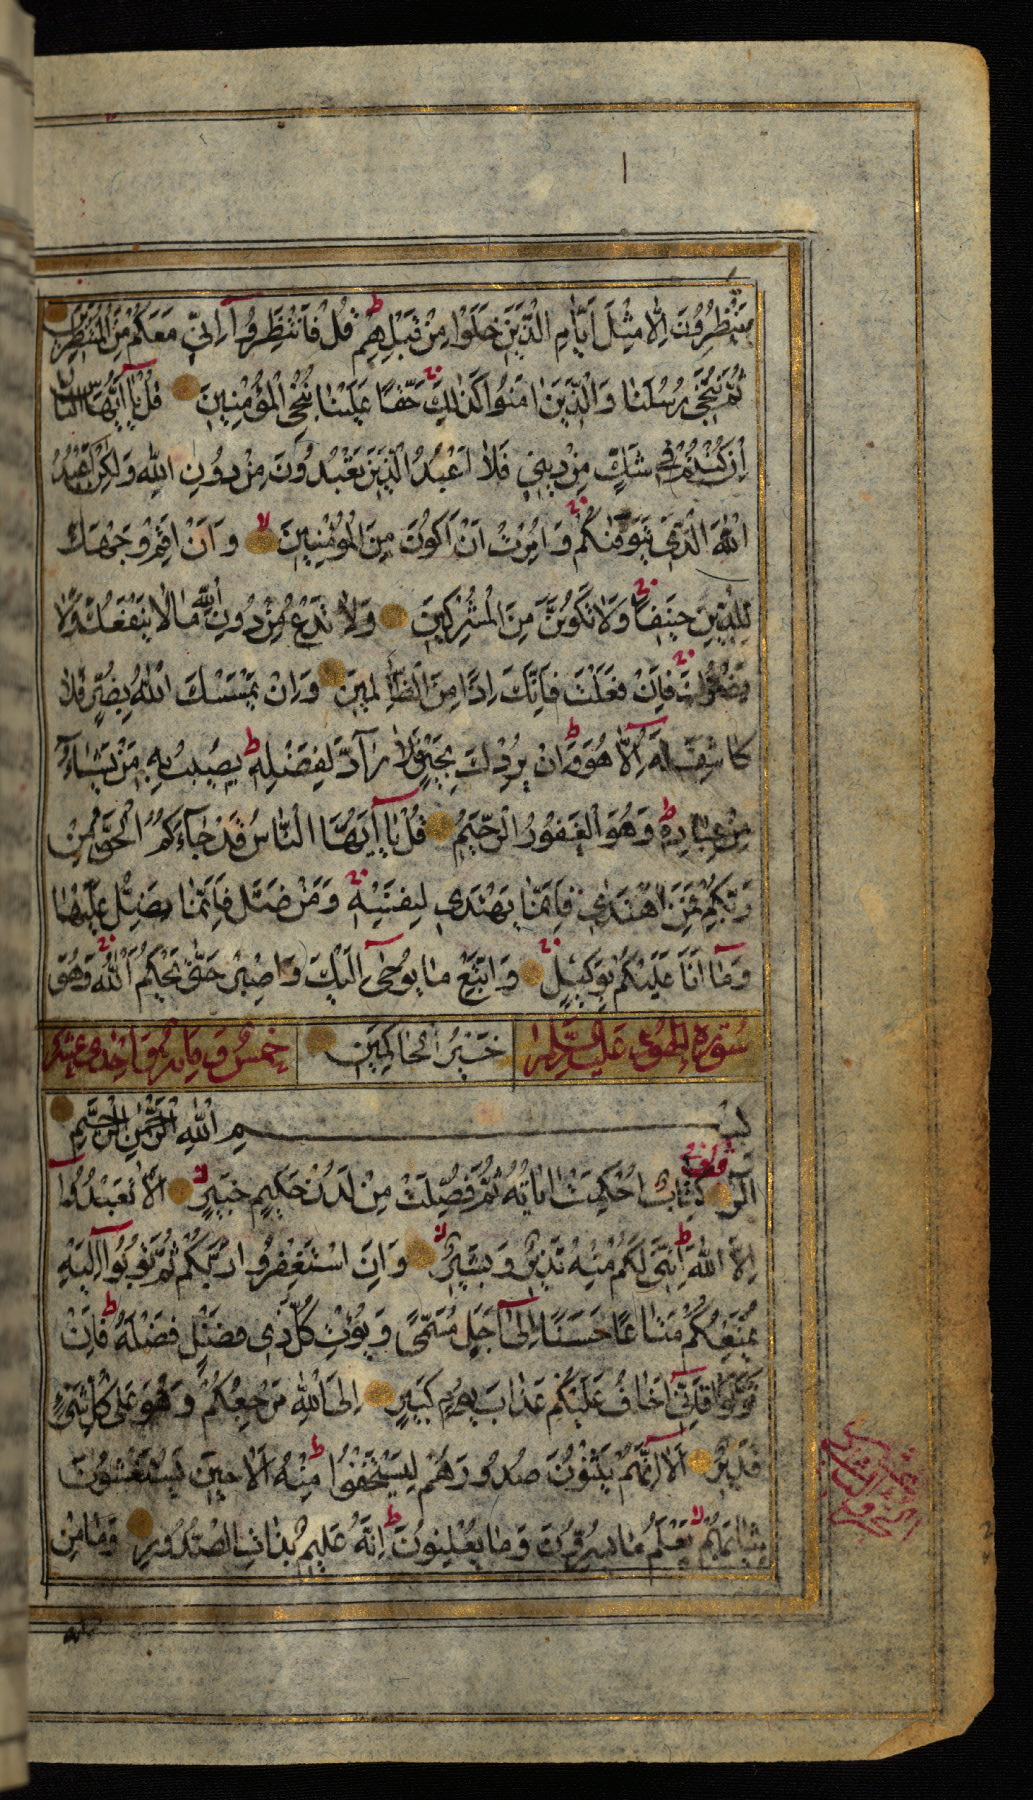 يَنْتَظِرُونَ اِلَّا مِثْلَ اَيَّامِ الَّذِينَ خَلَوْا مِنْ قَبْلِهِمْ قُلْ فَانْتَظِرُوا اِنِّي مَعَكُمْ مِنَ الْمُنْتَظِرِينَ
ثُمَّ نُنَجِّي رُسُلَنَا وَالَّذِينَ اٰمَنُوا كَذٰلِكَ حَقًّا عَلَيْنَا نُنْجِ الْمُؤْمِنِينَ قُلْ يَا اَيُّهَا النَّاسُ
اِنْ كُنْتُمْ فِي شَكٍّ مِنْ دِينِي فَلَا اَعْبُدُ الَّذِينَ تَعْبُدُونَ مِنْ دُونِ اللّٰهِ وَلٰكِنْ اَعْبُدُ
اللّٰهَ الَّذِي يَتَوَفّٰيكُمْ وَاُمِرْتُ اَنْ اَكُونَ مِنَ الْمُؤْمِنِينَ وَاَنْ اَقِمْ وَجْهَكَ
لِلدِّينِ حَنِيفًا وَلَا تَكُونَنَّ مِنَ الْمُشْرِكِينَ وَلَا تَدْعُ مِنْ دُونِ اللّٰهِ مَا لَا يَنْفَعُكَ وَلَا
يَضُرُّكَ فَاِنْ فَعَلْتَ فَاِنَّكَ اِذًا مِنَ الظَّالِمِينَ وَاِنْ يَمْسَسْكَ اللّٰهُ بِضُرٍّ فَلَا
كَاشِفَ لَهُ اِلَّا هُوَ وَاِنْ يُرِدْكَ بِخَيْرٍ فَلَا رَآدَّ لِفَضْلِهِ يُصِيبُ بِهِ مَنْ يَشَاءُ
مِنْ عِبَادِهِ وَهُوَ الْغَفُورُ الرَّحِيمُ قُلْ يَا اَيُّهَا النَّاسُ قَدْ جَاءَكُمُ الْحَقُّ مِنْ
رَبِّكُمْ فَمَنِ اهْتَدٰي فَاِنَّمَا يَهْتَدِي لِنَفْسِهِ وَمَنْ ضَلَّ فَاِنَّمَا يَضِلُّ عَلَيْهَا
وَمَا اَنَا عَلَيْكُمْ بِوَكِيلٍ وَاتَّبِعْ مَا يُوحٰى اِلَيْكَ وَاصْبِرْ حَتّٰى يَحْكُمَ اللّٰهُ وَهُوَ
سورة هود عليه السلام خَيْرُ الْحَاكِمِينَ
بِسْمِ اللّٰهِ الرَّحْمٰنِ الرَّحِيمِ
الٓرٰ كِتَابٌ اُحْكِمَتْ اٰيَاتُهُ ثُمَّ فُصِّلَتْ مِنْ لَدُنْ حَكِيمٍ خَبِيرٍ اَلَّا تَعْبُدُوا
اِلَّا اللّٰهَ اِنَّنِي لَكُمْ مِنْهُ نَذِيرٌ وَبَشِيرٌ وَاَنِ اسْتَغْفِرُوا رَبَّكُمْ ثُمَّ تُوبُوا اِلَيْهِ
يُمَتِّعْكُمْ مَتَاعًا حَسَنًا اِلٰى اَجَلٍ مُسَمًّى وَيُؤْتِ كُلَّ ذِي فَضْلٍ فَضْلَهُ فَاِنْ
تَوَلَّوْا فَاِنِّي اَخَافُ عَلَيْكُمْ عَذَابَ يَوْمٍ كَبِيرٍ اِلَى اللّٰهِ مَرْجِعُكُمْ وَهُوَ عَلٰى كُلِّ شَيْءٍ
قَدِيرٌ اَلَا اِنَّهُمْ يَثْنُونَ صُدُورَهُمْ لِيَسْتَخْفُوا مِنْهُ اَلَا حِينَ يَسْتَغْشُونَ
ثِيَابَهُمْ يَعْلَمُ مَا يُسِرُّونَ وَمَا يُعْلِنُونَ اِنَّهُ عَلِيمٌ بِذَاتِ الصُّدُورِ وَمَا مِنْ